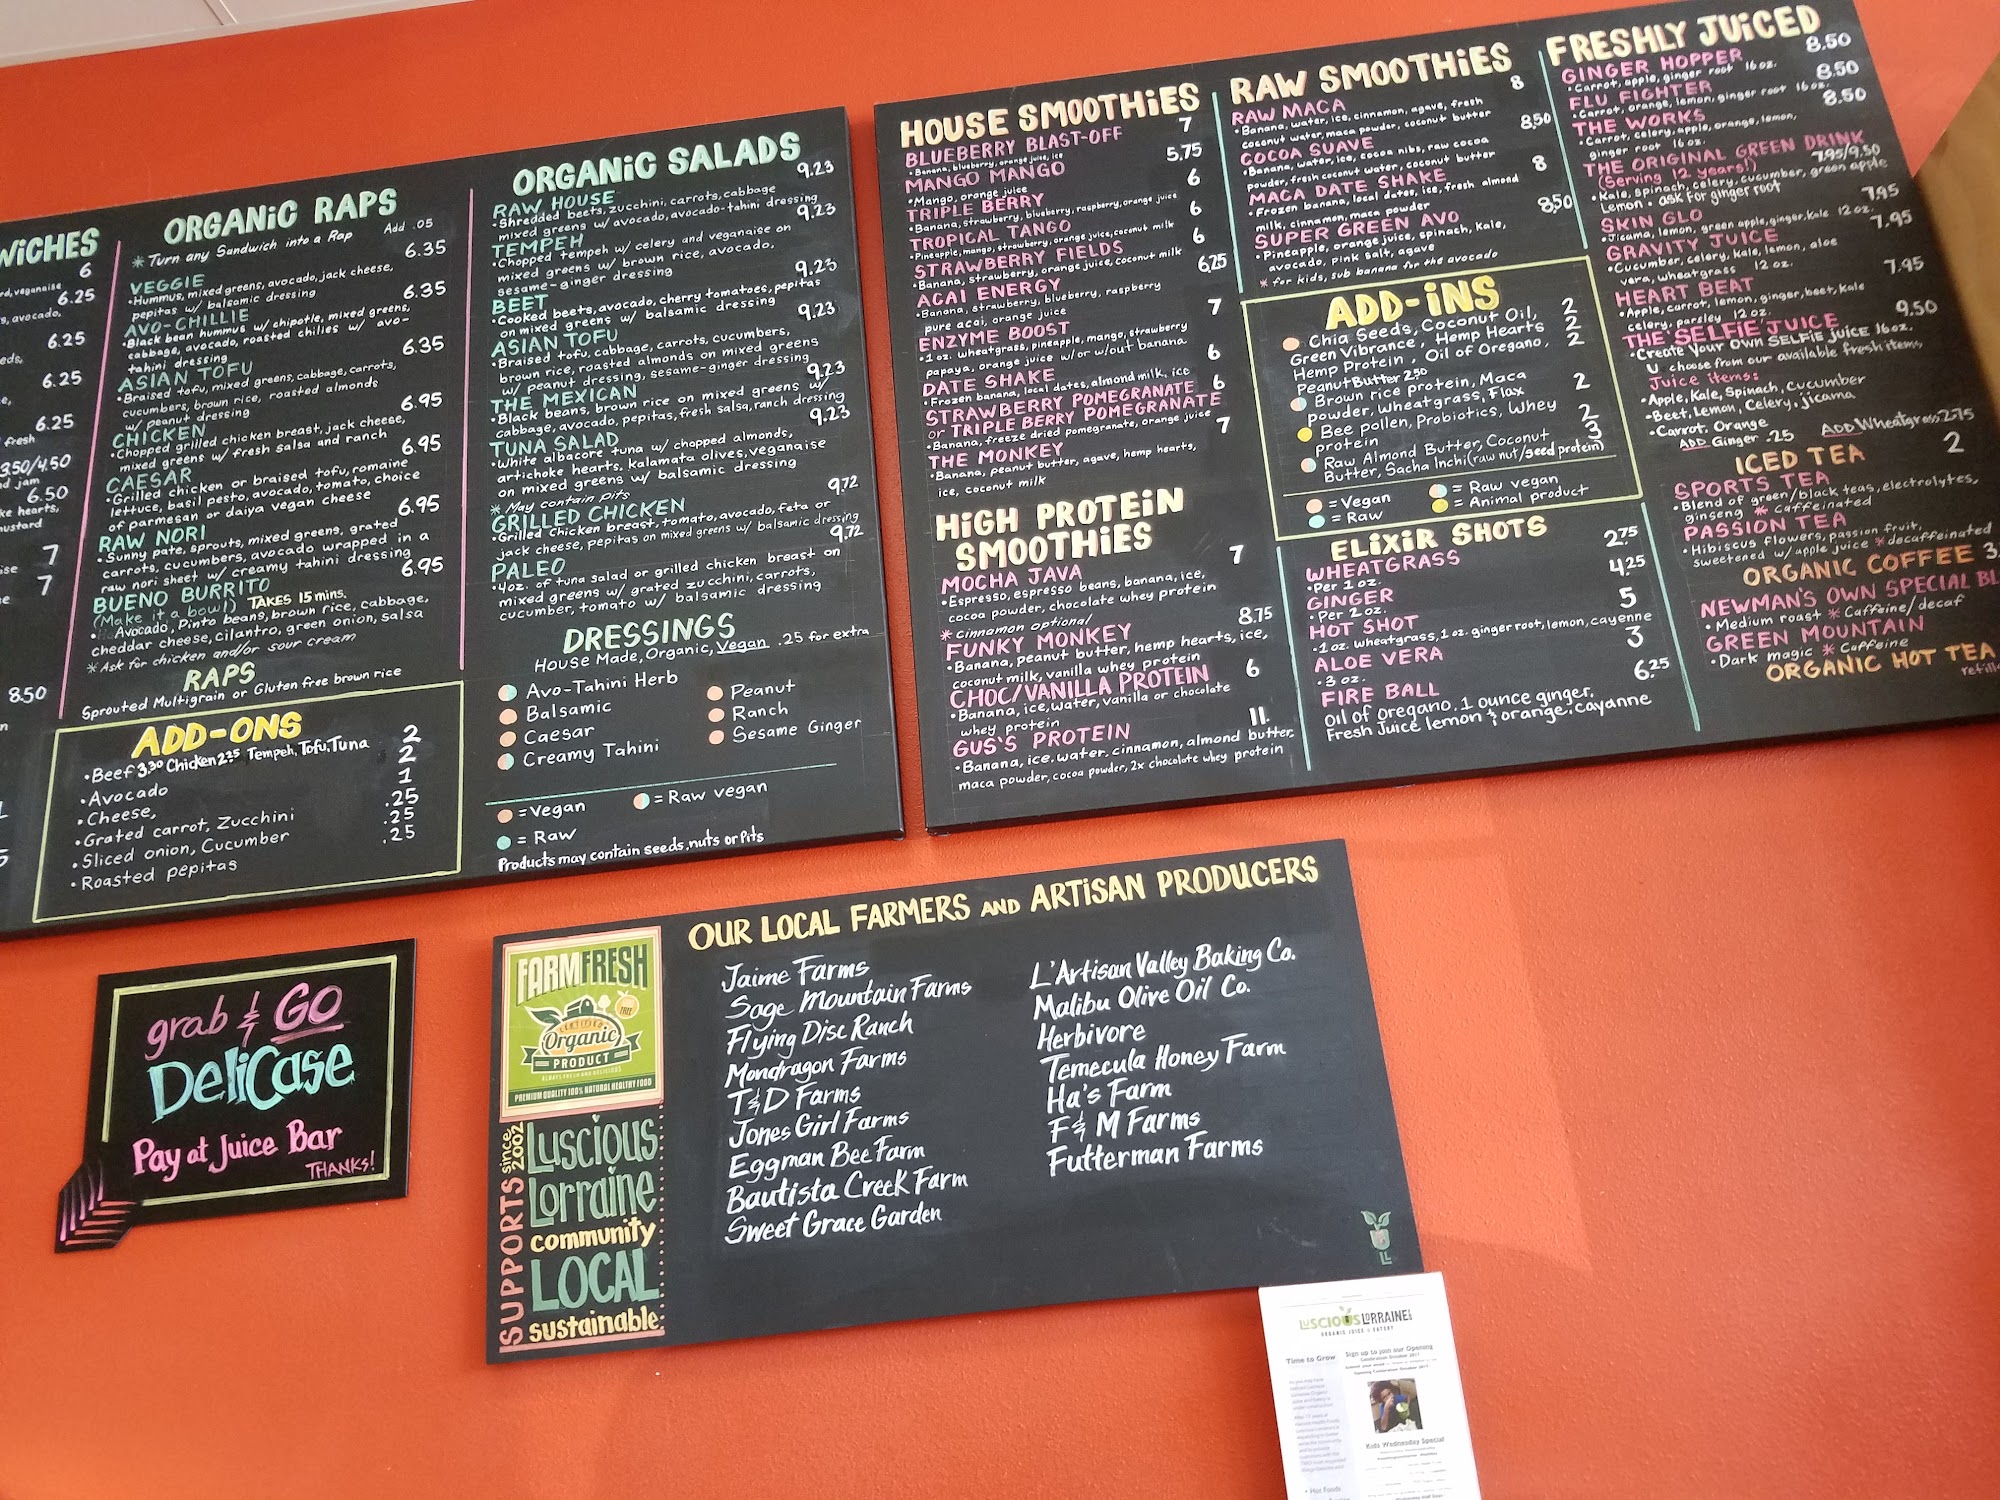 WICHES
6
rd, veganaise
6.25
s, avocado,
6.25
eds,
6.25
e,
6.25
fresh
3.50/4.50
nd jam
6.50
ke hearts,
mustard
7
ise
7
e
8.50
n
ORGANiC RAPS
* Turn any Sandwich into a Rap Add .05
VEGGIE 6.35
• Hummus, mixed greens, avocado, jack cheese,
pepitas w/ balsamic dressing
AVO-CHILLIE 6.35
• Black bean hummus w/ chipotle, mixed greens,
cabbage, avocado, roasted chilies w/ avo-
tahini dressing
ASIAN TOFU 6.35
• Braised tofu, mixed greens, cabbage, carrots,
cucumbers, brown rice, roasted almonds
w/ peanut dressing
CHICKEN 6.95
• Chopped grilled chicken breast, jack cheese,
mixed greens w/ fresh salsa and ranch
CAESAR 6.95
• Grilled chicken or braised tofu, romaine
lettuce, basil pesto, avocado, tomato, choice
of parmesan or daiya vegan cheese
RAW NORI 6.95
• Sunny pate, sprouts, mixed greens, grated
carrots, cucumbers, avocado wrapped in a
raw nori sheet w/ creamy tahini dressing
BUENO BURRITO 6.95
(Make it a bowl) TAKES 15 mins.
• Avocado, Pinto beans, brown rice, cabbage,
cheddar cheese, cilantro, green onion, salsa
* Ask for chicken and/or sour cream
RAPS
Sprouted Multigrain or Gluten free brown rice
ADD-ONS
• Beef 3.30 Chicken 2.25 Tempeh, Tofu, Tuna 2
• Avocado 2
• Cheese, 1
• Grated carrot, Zucchini .25
• Sliced onion, Cucumber .25
• Roasted pepitas .25
ORGANiC SALADS
RAW HOUSE 9.23
• Shredded beets, zucchini, carrots, cabbage
mixed greens w/ avocado, avocado-tahini dressing
TEMPEH 9.23
• Chopped tempeh w/ celery and veganaise on
mixed greens w/ brown rice, avocado,
sesame-ginger dressing
BEET 9.23
• Cooked beets, avocado, cherry tomatoes, pepitas
on mixed greens w/ balsamic dressing
ASIAN TOFU 9.23
• Braised tofu, cabbage, carrots, cucumbers,
brown rice, roasted almonds on mixed greens
w/ peanut dressing, sesame-ginger dressing
THE MEXICAN 9.23
• Black beans, brown rice on mixed greens w/
cabbage, avocado, pepitas, fresh salsa, ranch dressing
TUNA SALAD 9.23
• White albacore tuna w/ chopped almonds,
artichoke hearts, kalamata olives, veganaise
on mixed greens w/ balsamic dressing
* May contain pits
GRILLED CHICKEN 9.72
• Grilled Chicken breast, tomato, avocado, feta or
jack cheese, pepitas on mixed greens w/ balsamic dressing
PALEO 9.72
• 4oz. of tuna salad or grilled chicken breast on
mixed greens w/ grated zucchini, carrots,
cucumber, tomato w/ balsamic dressing
DRESSINGS
House Made, Organic, Vegan .25 for extra
Avo-Tahini Herb
Balsamic
Caesar
Creamy Tahini
Peanut
Ranch
Sesame Ginger
= Vegan = Raw vegan
= Raw
Products may contain seeds, nuts or Pits
HOUSE SMOOTHiES
BLUEBERRY BLAST-OFF 7
• Banana, blueberry, orange juice, ice
MANGO MANGO 5.75
• Mango, orange juice
TRIPLE BERRY 6
• Banana, strawberry, blueberry, raspberry, orange juice
TROPICAL TANGO 6
• Pineapple, mango, strawberry, orange juice, coconut milk
STRAWBERRY FIELDS 6
• Banana, strawberry, orange juice, coconut milk
ACAI ENERGY 6.25
• Banana, strawberry, blueberry, raspberry
pure acai, orange juice
ENZYME BOOST 7
• 1 oz. wheatgrass, pineapple, mango, strawberry
papaya, orange juice w/or w/out banana
DATE SHAKE 6
• Frozen banana, local dates, almond milk, ice
STRAWBERRY POMEGRANATE 6
or TRIPLE BERRY POMEGRANATE
• Banana, freeze dried pomegranate, orange juice
THE MONKEY 7
• Banana, peanut butter, agave, hemp hearts,
ice, coconut milk
HiGH PROTEiN
SMOOTHiES
MOCHA JAVA 7
• Espresso, espresso beans, banana, ice,
cocoa powder, chocolate whey protein
* cinnamon optional
FUNKY MONKEY 8.75
• Banana, peanut butter, hemp hearts, ice,
coconut milk, vanilla whey protein
CHOC/VANILLA PROTEIN 6
• Banana, ice, water, vanilla or chocolate
whey protein
GUS'S PROTEIN 11.
• Banana, ice, water, cinnamon, almond butter,
maca powder, cocoa powder, 2x chocolate whey protein
RAW SMOOTHiES
RAW MACA 8
• Banana, water, ice, cinnamon, agave, fresh
coconut water, maca powder, coconut butter
COCOA SUAVE 8.50
• Banana, water, ice, cocoa nibs, raw cocoa
powder, fresh coconut water, coconut butter
MACA DATE SHAKE 8
• Frozen banana, local dates, ice, fresh almond
milk, cinnamon, maca powder
SUPER GREEN AVO 8.50
• Pineapple, orange juice, spinach, kale,
avocado, pink salt, agave
* for kids, sub banana for the avocado
ADD-iNS
Chia Seeds, Coconut Oil, 2
Green Vibrance, Hemp Hearts 2
Hemp Protein, Oil of Oregano, 2
Peanut Butter 2.50
Brown rice protein, Maca 2
powder, Wheatgrass, Flax
Bee pollen, Probiotics, Whey 2
protein
Raw Almond Butter, Coconut 3
Butter, Sacha Inchi (raw nut/seed protein)
= Vegan = Raw vegan
= Raw = Animal product
ELiXiR SHOTS
WHEATGRASS 2.75
• Per 1 oz.
GINGER 4.25
• Per 2 oz.
HOT SHOT 5
• 1 oz. wheatgrass, 1 oz. ginger root, lemon, cayenne
ALOE VERA 3
• 3 oz.
FIRE BALL 6.25
oil of oregano. 1 ounce ginger.
Fresh Juice lemon & orange, cayanne
FRESHLY JUiCED
GINGER HOPPER 8.50
• Carrot, apple, ginger root 16 oz.
FLU FIGHTER 8.50
• Carrot, orange, lemon, ginger root 16 oz.
THE WORKS 8.50
• Carrot, celery, apple, orange, lemon,
ginger root 16 oz.
THE ORIGINAL GREEN DRINK
(Serving 12 years!) 7.95/9.50
• Kale, Spinach, celery, cucumber, green apple
Lemon • ask for ginger root
SKIN GLO 7.95
• Jicama, lemon, green apple, ginger, kale 12 oz.
GRAVITY JUICE 7.95
• Cucumber, celery, kale, lemon, aloe
vera, wheatgrass 12 oz.
HEART BEAT 7.95
• Apple, carrot, lemon, ginger, beet, kale
celery, parsley 12 oz.
THE SELFiE JUICE 9.50
• Create Your OWN SELFiE juice 16oz.
U choose from our available fresh items
Juice items:
• Apple, Kale, Spinach, cucumber
• Beet, Lemon, Celery, jicama
• Carrot, Orange
ADD Ginger .25 ADD Wheatgrass 2.75
ICED TEA 2
SPORTS TEA
• Blend of green/black teas, electrolytes,
ginseng * caffeinated
PASSION TEA
• Hibiscus flowers, passion fruit,
sweetened w/ apple juice * decaffeinated
ORGANIC COFFEE 3.
NEWMAN'S OWN SPECIAL BL
• Medium roast * Caffeine/decaf
GREEN MOUNTAIN
• Dark magic * Caffeine
ORGANIC HOT TEA
refill
grab & GO
DeliCase
Pay at Juice Bar
THANKS!
FARMFRESH
FREE
CERTIFIED
Organic
PRODUCT
ALWAYS FRESH AND DELICIOUS
PREMIUM QUALITY 100% NATURAL HEALTHY FOOD
SUPPORTS since 2002
Luscious
Lorraine
community
LOCAL
sustainable
OUR LOCAL FARMERS AND ARTiSAN PRODUCERS
Jaime Farms
Sage Mountain Farms
Flying Disc Ranch
Mondragon Farms
T&D Farms
Jones Girl Farms
Eggman Bee Farm
Bautista Creek Farm
Sweet Grace Garden
L'Artisan Valley Baking Co.
Malibu Olive Oil Co.
Herbivore
Temecula Honey Farm
Ha's Farm
F & M Farms
Futterman Farms
LL
LUSCIOUS LORRAINE
ORGANIC JUICE & EATERY
Time to Grow
Sign up to join our Opening
Celebration October 2017
Kids Wednesday Special
• Hot Foods